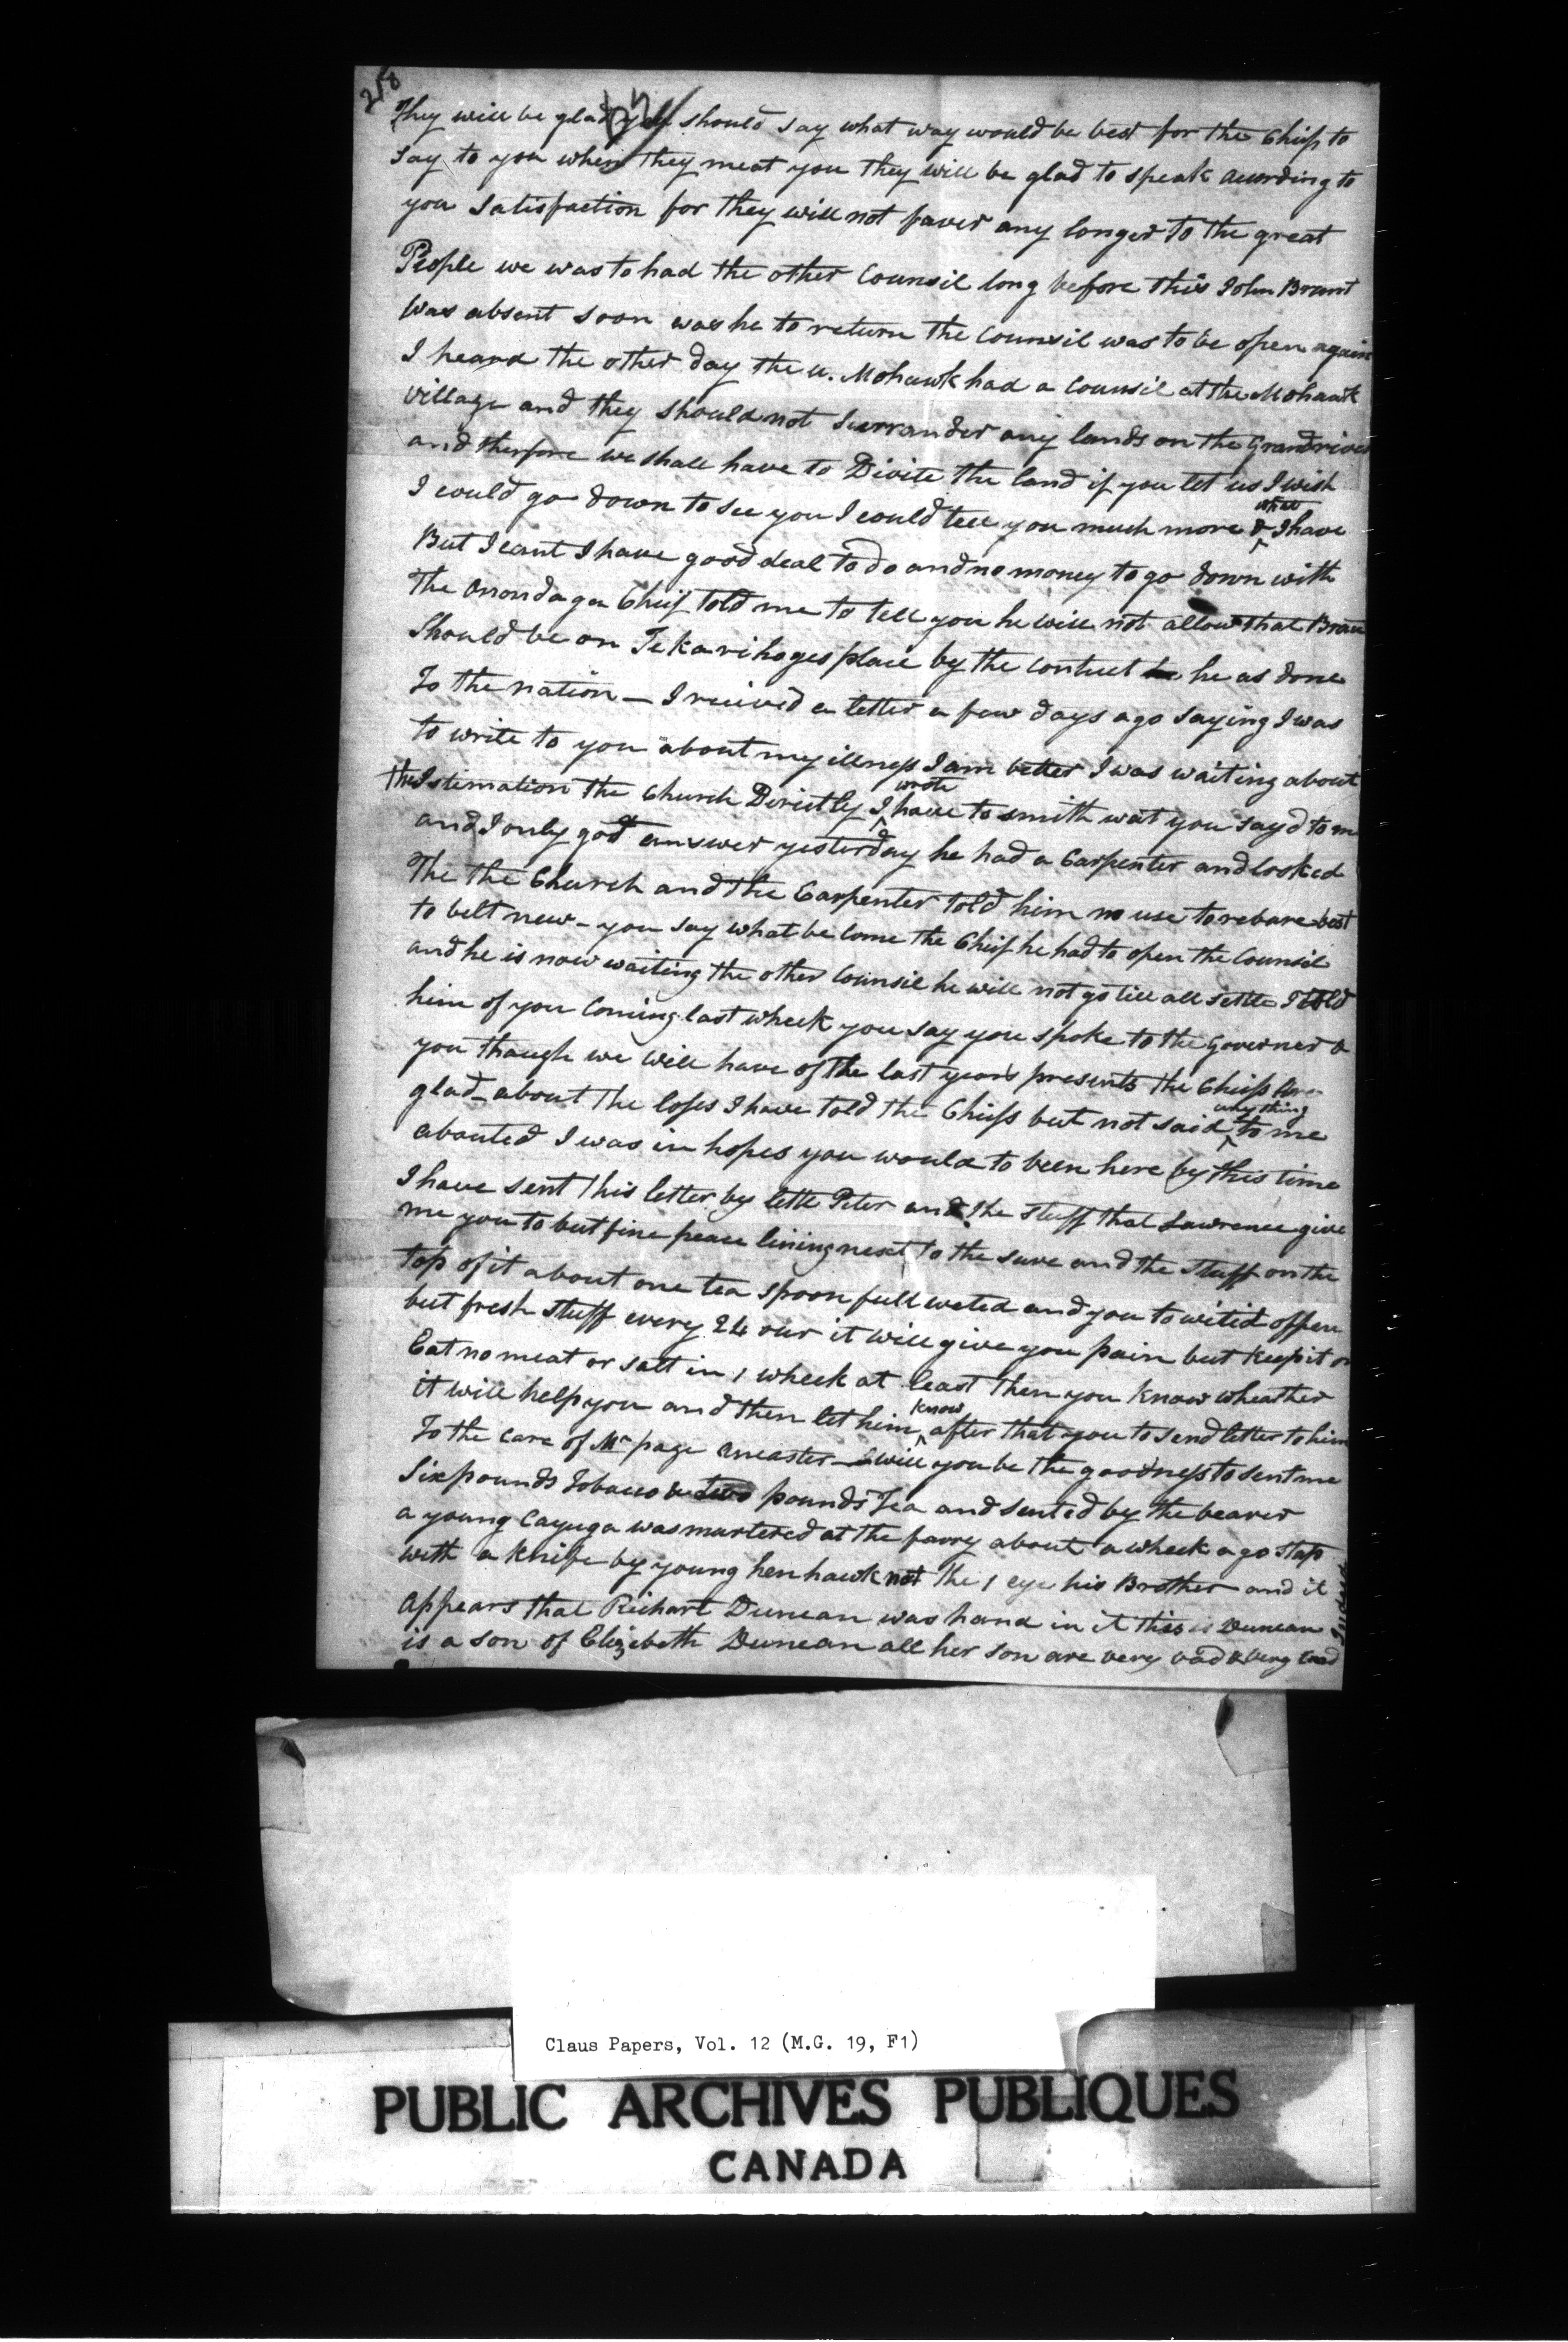 218
They will be glad you should say what way would be best for the Chiefs to
say to you when they meat you they will be glad to speak acording to
you Satisfaction for they will not faver any longer to the great
People we was to had the other Counsil long before this John Brant
was absent soon was he to return the Counsil was to be open again
I heard the other day the u. Mohawk had a Counsil at the Mohawk
Village and they should not Surrander any lands on the Grandriver
and therfore we shall have to Divite the land if you let us I wish
I could go down to see you I could tell you much more I have
But I cant I have good deal to do and no money to go down with
The Onondaga Chief told me to tell you he will not allow that Bran
Should be on Tekarihoges place by the contuct he as done
To the nation — I recived a letter a few days ago saying I was
to write to you about my illness I am better I was waiting about
the Istemation the Church Directly I wrote have to Smith wat you sayd to m
and I only god answer yesterday he had a Carpenter and looked
The the Church and the Carpenter told him no use to rebare best
to belt new – you say what be come the Chief he had to open the Counsil
and he is now waiting the other Counsil he will not go till all settle I told
him of you Coming last wheek you say you spoke to the Governer &
you though we will have of the last years presents the Chiefs are
glad – about the loses I have told the Chiefs but not said any thing to me
abouted I was in hopes you would to been here by this time
I have sent this letter by lette Peter and the stuff that Lawrence give
me you to but fine peace lining next to the sure and the stuff on the
top of it about one tea spoon full weted and you to witid offen
but fresh stuff every 24 our it will give you pain but keep it on
Eat no meat or salt in 1 wheek at least then you know wheather
it will help you and then let him know after that you to send letter to him
To the care of Mr page ancaster – will you be the goodness to sent me
Six pounds Tobacco & two pounds Tea and sented by the bearer
a young Cayuga was murtered at the farry about a wheek ago stap
with a knife by young hen hawk not the 1 eye his Brother and it
appears that Richart Duncan was hand in it this Duncan
is a son of Elizebeth Duncan all her son are very bad & very
Claus Papers, Vol. 12 (M.G. 19, F1)
PUBLIC ARCHIVES PUBLIQUES
CANADA